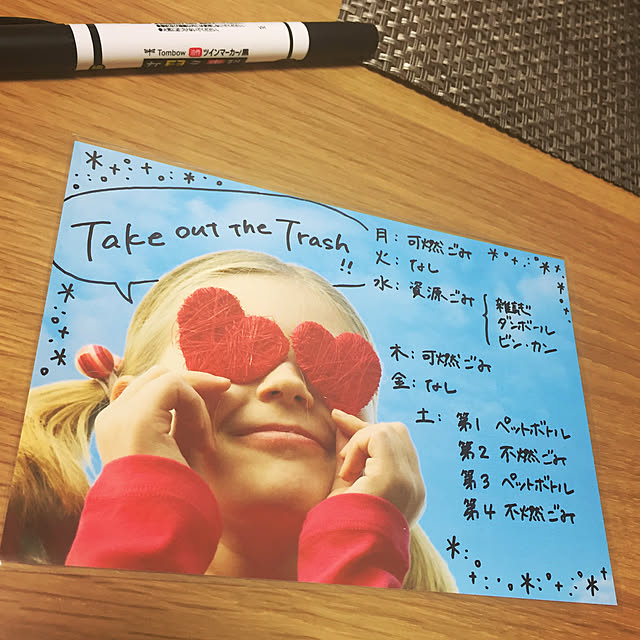 Tombow 油性 ツインマーカー/黒
Take out the Trash
!!
月：可燃ごみ
火：なし
水：資源ごみ
雑誌
ダンボール
ビン・カン
木：可燃ごみ
金：なし
土：第1 ペットボトル
第2 不燃ごみ
第3 ペットボトル
第4 不燃ごみ